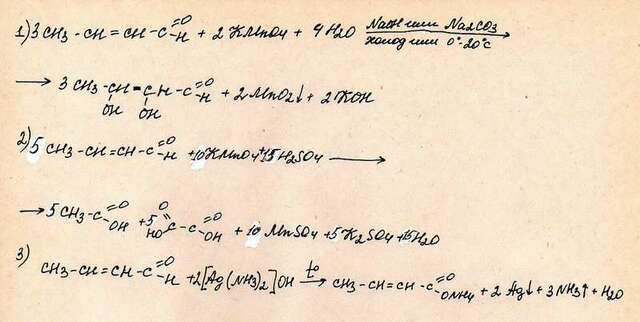 1) 3CH3-CH=CH-C(=O)-H + 2KMnO4 + 4H2O NaOH или Na2CO3 / холод или 0°-20°C →
→ 3CH3-CH(OH)=CH(OH)-C(=O)-H + 2MnO2↓ + 2KOH
2) 5CH3-CH=CH-C(=O)-H + 10KMnO4 + 15H2SO4 →
→ 5CH3-C(=O)-OH + 5HO-C(=O)-C(=O)-OH + 10MnSO4 + 5K2SO4 + 15H2O
3) CH3-CH=CH-C(=O)-H + 2[Ag(NH3)2]OH t° → CH3-CH=CH-C(=O)-ONH4 + 2Ag↓ + 3NH3↑ + H2O